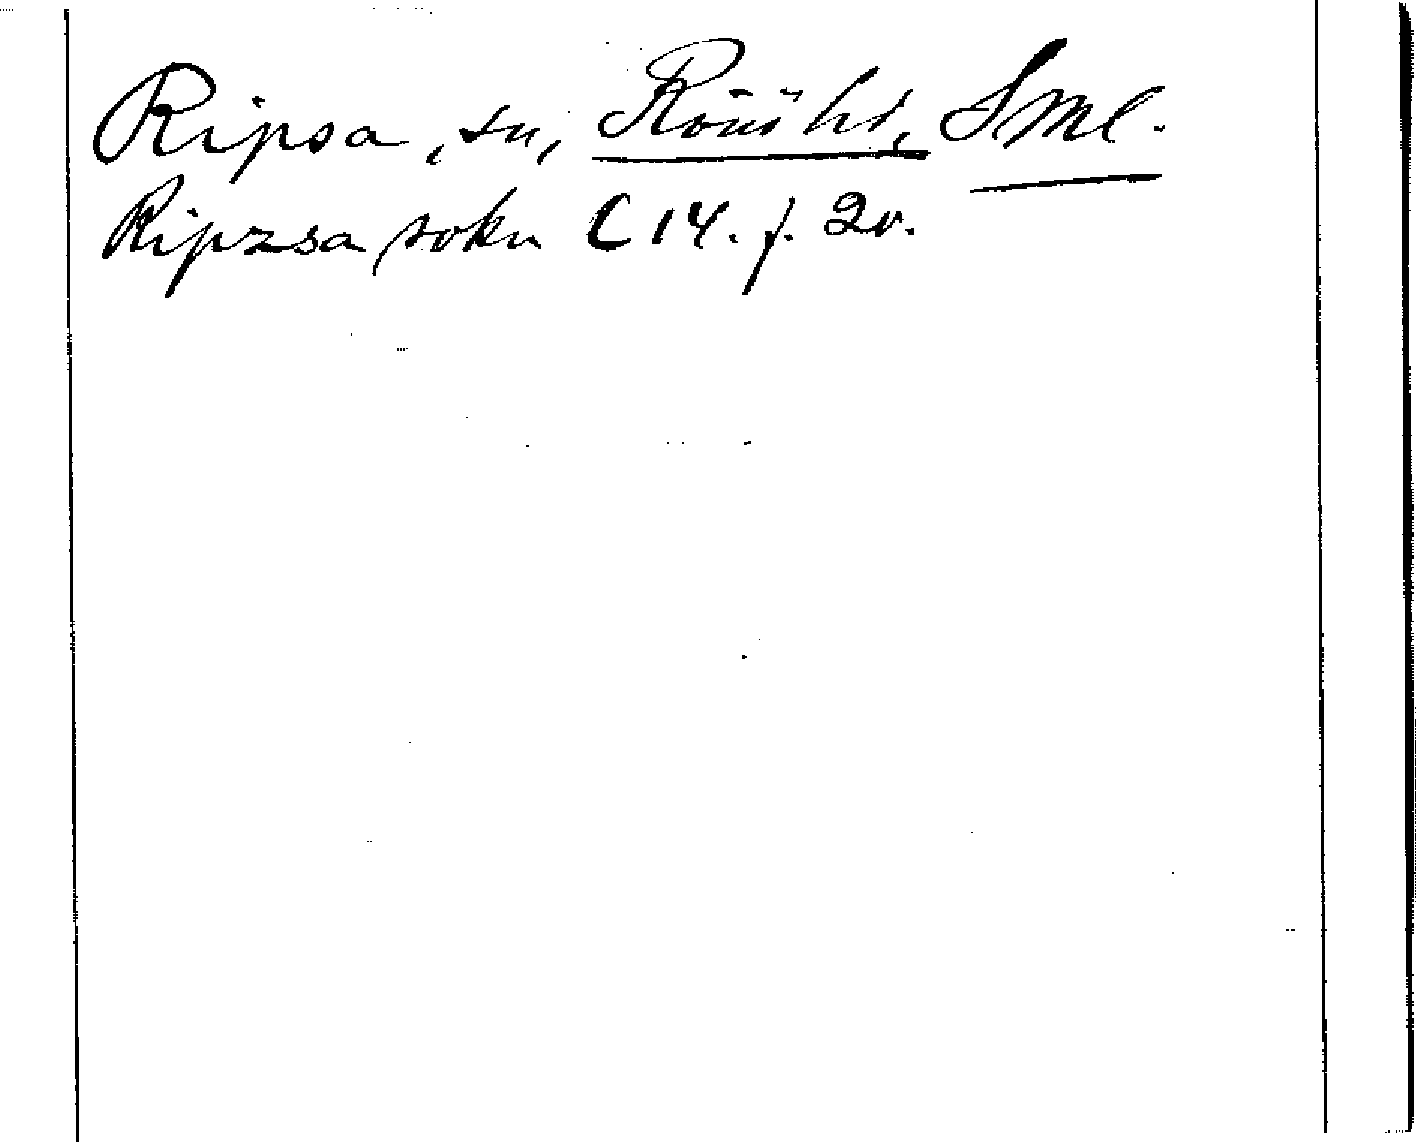 Ripsa, sn, Rönö hd, Sml.
Ripzsa sokn C 14. f. 2v.